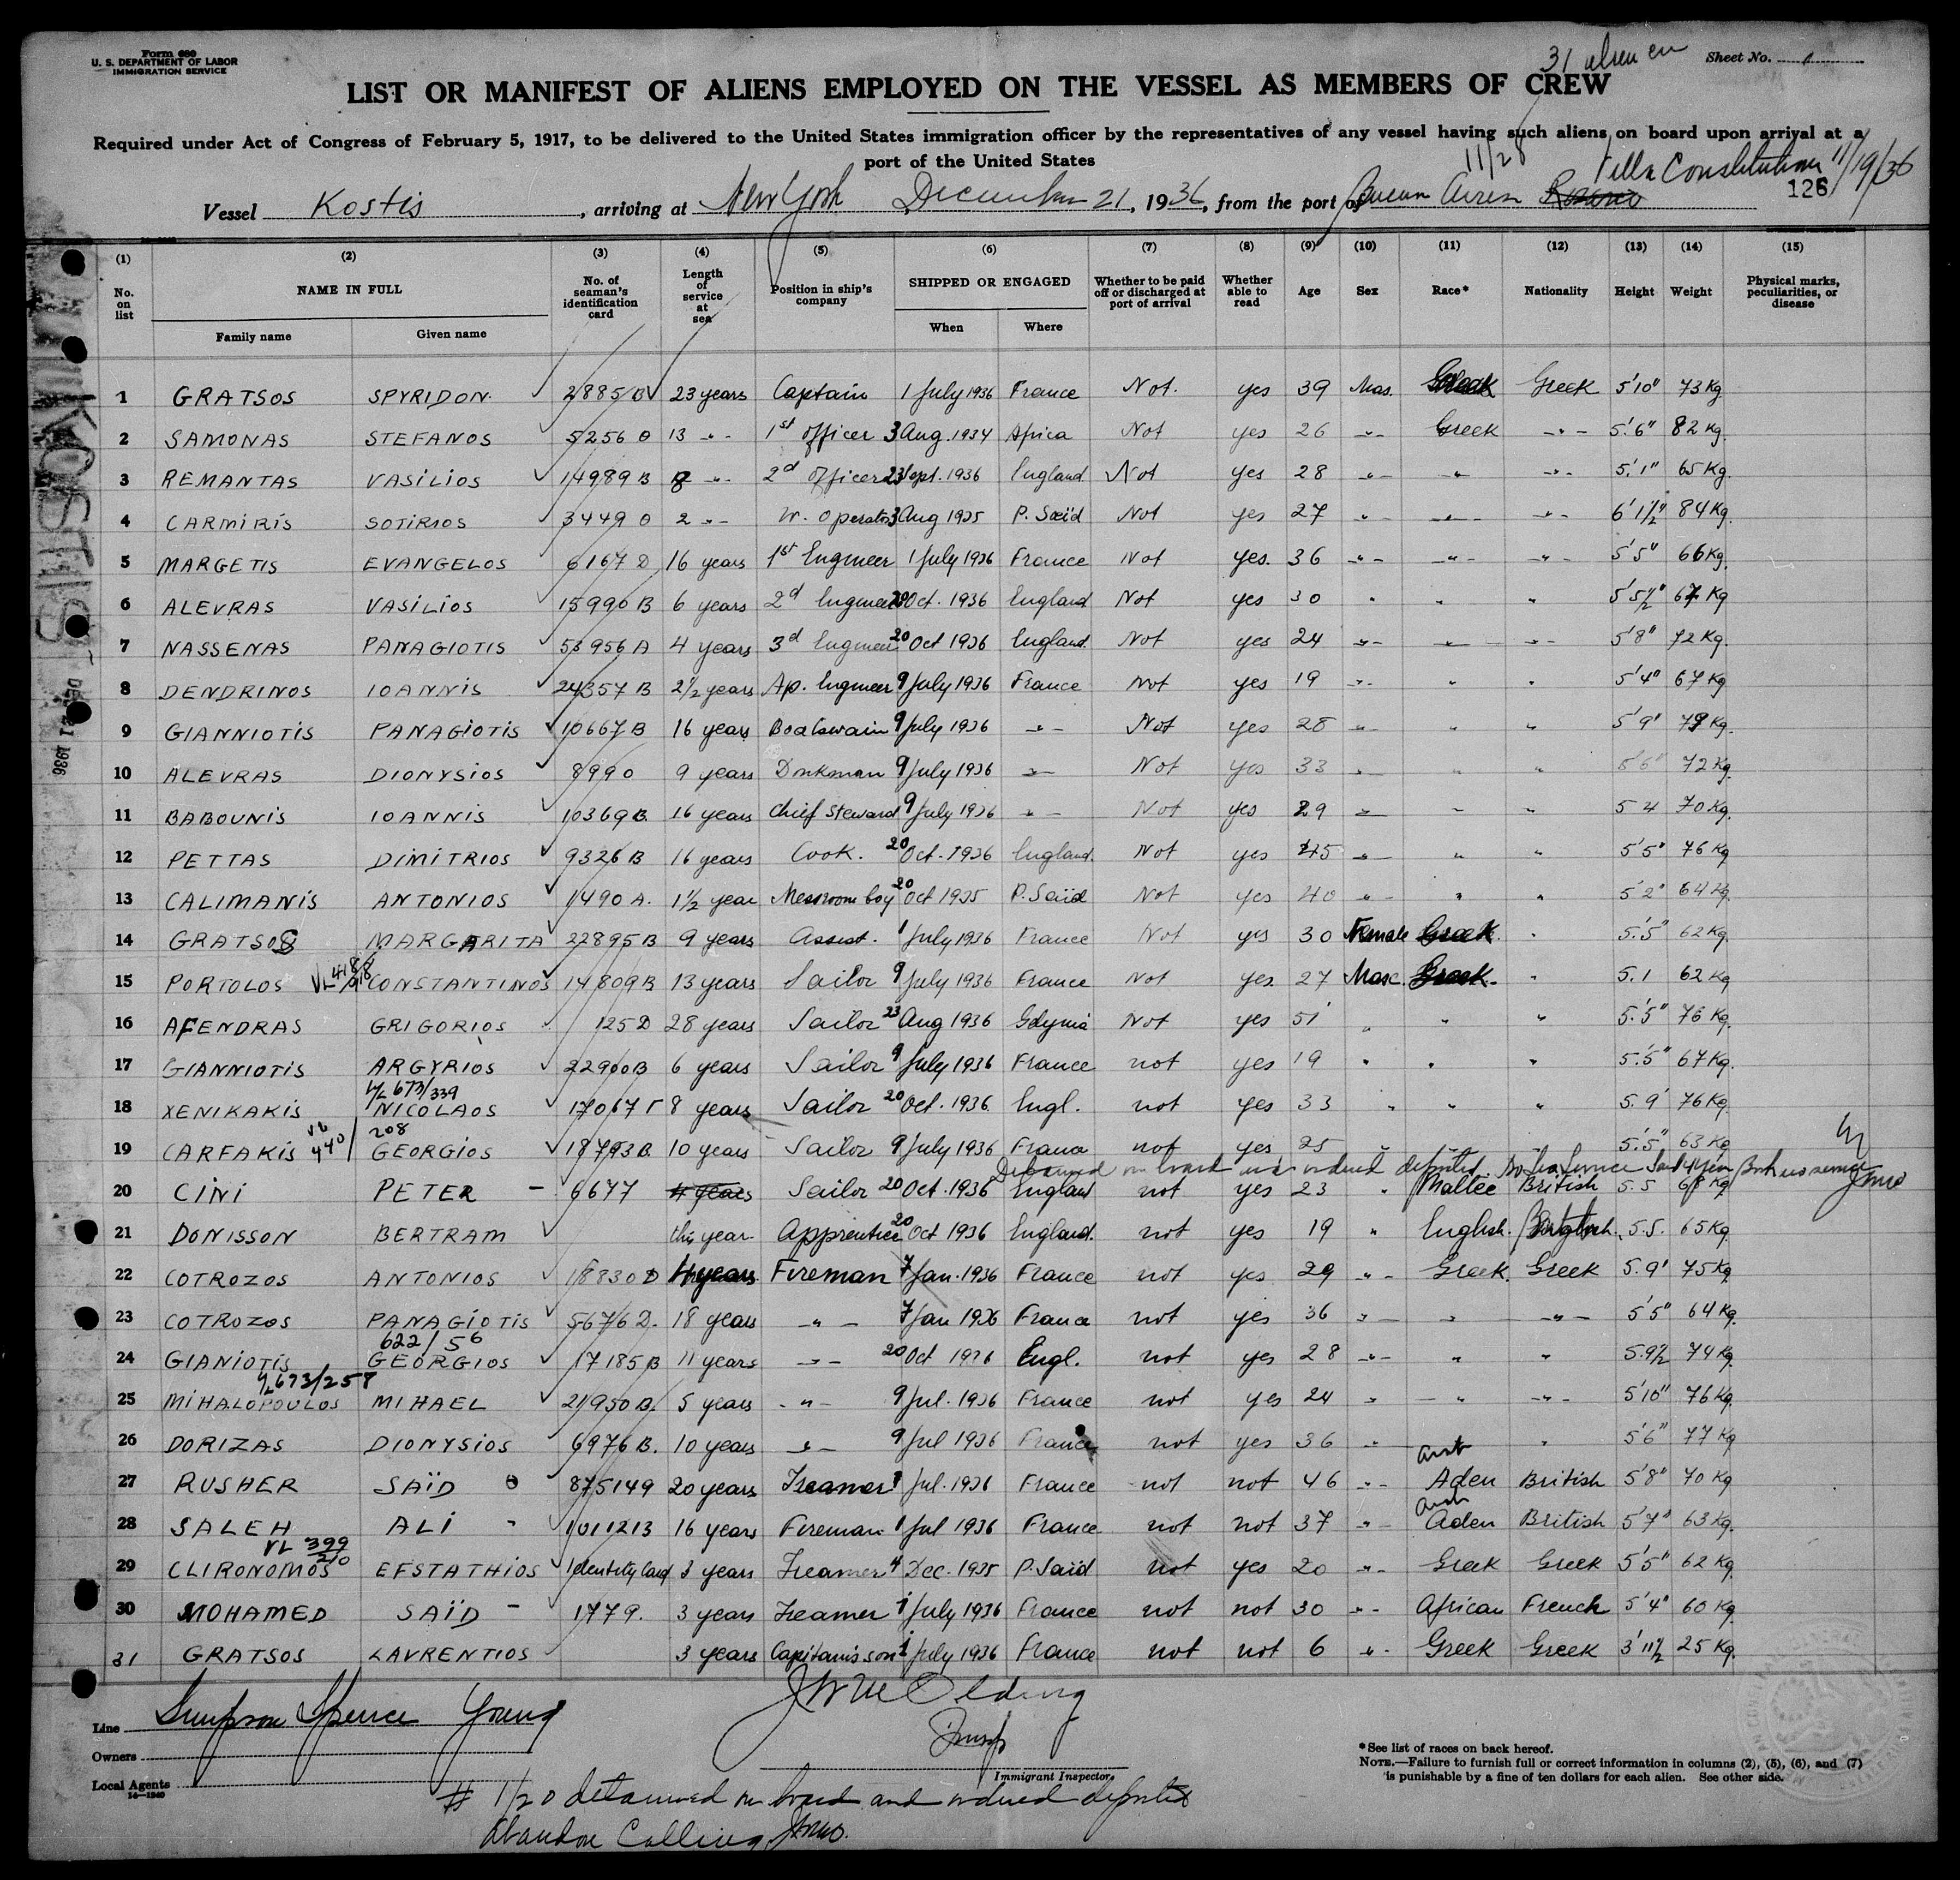 Form 680
U. S. DEPARTMENT OF LABOR
IMMIGRATION SERVICE
31 alien crew
Sheet No. 1
LIST OR MANIFEST OF ALIENS EMPLOYED ON THE VESSEL AS MEMBERS OF CREW
Required under Act of Congress of February 5, 1917, to be delivered to the United States immigration officer by the representatives of any vessel having such aliens on board upon arrival at a
port of the United States
11/28 Villa Constitution 11/19/36
Vessel Kostis, arriving at New York December 21, 1936, from the port of Buenos Aires Rosario 126
(1) (2) (3) (4) (5) (6) (7) (8) (9) (10) (11) (12) (13) (14) (15)
No. on list NAME IN FULL Family name Given name No. of seaman's identification card Length of service at sea Position in ship's company SHIPPED OR ENGAGED When Where Whether to be paid off or discharged at port of arrival Whether able to read Age Sex Race* Nationality Height Weight Physical marks, peculiarities, or disease
KOSTIS
DEC 21 1936
1 GRATSOS SPYRIDON 2885 B 23 years Captain 1 July 1936 France Not. yes 39 Mas. Greek Greek 5'10" 73 Kg
2 SAMONAS STEFANOS 5256 13 -"- 1st officer 3 Aug. 1934 Africa Not yes 26 -"- Greek -"- 5'6" 82 Kg.
3 REMANTAS VASILIOS 14989 B 8 -"- 2d officer 23 Sept. 1936 England Not yes 28 -"- -"- -"- 5'.1" 65 Kg.
4 CARMIRIS SOTIRIOS 3449 2 -"- W. Operator 3 Aug 1935 P. Saïd Not yes 27 -"- -"- -"- 6'1½" 84 Kg.
5 MARGETIS EVANGELOS 6167 D 16 years 1st Engineer 1 July 1936 France Not yes. 36 -"- -"- -"- 5'5" 66 Kg.
6 ALEVRAS VASILIOS 15990 B 6 years 2d Engineer 20 Oct. 1936 England Not yes 30 " " " 5'5½" 67 Kg
7 NASSENAS PANAGIOTIS 53956 A 4 years 3d Engineer 20 Oct 1936 England Not yes 24 -"- -"- -"- 5'8" 72 Kg.
8 DENDRINOS IOANNIS 24357 B 2½ years Ap. Engineer 9 July 1936 France Not yes 19 -"- " " 5'4" 67 Kg
9 GIANNIOTIS PANAGIOTIS 10667 B 16 years Boatswain 9 July 1936 -"- Not yes 28 -"- " " 5'9' 79 Kg.
10 ALEVRAS DIONYSIOS 8990 9 years Donkman 9 July 1936 -"- Not yes 33 -"- " " 5'6" 72 Kg
11 BABOUNIS IOANNIS 10369 B. 16 years Chief Steward 9 July 1936 -"- Not yes 29 -"- " " 5 4 70 Kg.
12 PETTAS DIMITRIOS 9326 B 16 years Cook. 20 Oct. 1936 England. Not yes 45 -"- " " 5'5" 76 Kg
13 CALIMANIS ANTONIOS 1490 A. 1½ year Messroom boy 20 Oct 1935 P. Saïd Not yes 40 -"- " " 5'2" 64 Kg.
14 GRATSOS MARGARITA 22895 B 9 years Assist. 1 July 1936 France Not yes 30 Female Greek. " 5'.5" 62 Kg.
15 PORTOLOS VL 418/918 CONSTANTINOS 14809 B 13 years Sailor 9 July 1936 France Not yes 27 Masc. Greek. " 5.1 62 Kg
16 AFENDRAS GRIGORIOS 125 D 28 years Sailor 23 Aug 1936 Gdynia Not yes 51 " " " 5'.5" 76 Kg.
17 GIANNIOTIS ARGYRIOS 22960 B 6 years Sailor 9 July 1936 France not yes 19 " " " 5.'5" 67 Kg.
18 XENIKAKIS V/L 673/339 NICOLAOS 17067 Γ 8 years Sailor 20 Oct. 1936. Engl. not yes 33 " " " 5.9' 76 Kg.
19 CARFAKIS VL 440/208 GEORGIOS 18793 B. 10 years Sailor 9 July 1936 France not yes 25 5'.5" 63 Kg
Detained on board and ordered deported.
20 CINI PETER - 6677 4 years Sailor 20 Oct. 1936 England not yes 23 " Maltee British 5.5 68 Kg
21 DONISSON BERTRAM this year Apprentice 20 Oct 1936 England. not yes 19 " English. 5.5. 65 Kg.
22 COTROZOS ANTONIOS 18830 D 11 years Fireman 7 Jan. 1936 France not yes 29 -"- Greek. Greek 5.9' 75 Kg
23 COTROZOS PANAGIOTIS 5676 D. 18 years -"- 7 Jan 1936 France not yes 36 -"- -"- -"- 5'5" 64 Kg.
24 GIANIOTIS 622/56 GEORGIOS 17185 B 11 years -"- 20 Oct 1936 Engl. not yes 28 -"- " " 5.9½ 74 Kg.
25 MIHALOPOULOS V/L 673/257 MIHAEL 21950 B. 5 years -"- 9 Jul. 1936 France not yes 24 -"- -"- -"- 5'10" 76 Kg.
26 DORIZAS DIONYSIOS 6976 B. 10 years -"- 9 Jul 1936 France not yes 36 -"- " 5'6" 77 Kg
27 RUSHER SAÏD 875149 20 years Freamer 1 Jul. 1936 France not not 46 -"- Arab Aden British 5'8" 70 Kg
28 SALEH ALI - 1011213 16 years Fireman 1 Jul 1936 France not not 37 -"- Arab Aden British 5'7" 63 Kg.
29 CLIRONOMOS VL 399/210 EFSTATHIOS Identity Card 3 years Freamer 4 Dec. 1935 P. Saïd not yes 20 -"- Greek Greek 5'5" 62 Kg.
30 MOHAMED SAÏD - 1779. 3 years Freamer 1 July 1936 France not not 30 -"- African French 5'4" 60 Kg.
31 GRATSOS LAVRENTIOS 3 years Capitanis son 1 July 1936 France not not 6 -"- Greek Greek 3'11½ 25 Kg.
Line Simpson Spence Young
Owners
Local Agents
14—1240
Immigrant Inspector.
*See list of races on back hereof.
NOTE.—Failure to furnish full or correct information in columns (2), (5), (6), and (7)
is punishable by a fine of ten dollars for each alien. See other side.
# 1/20 detained on board and ordered deported